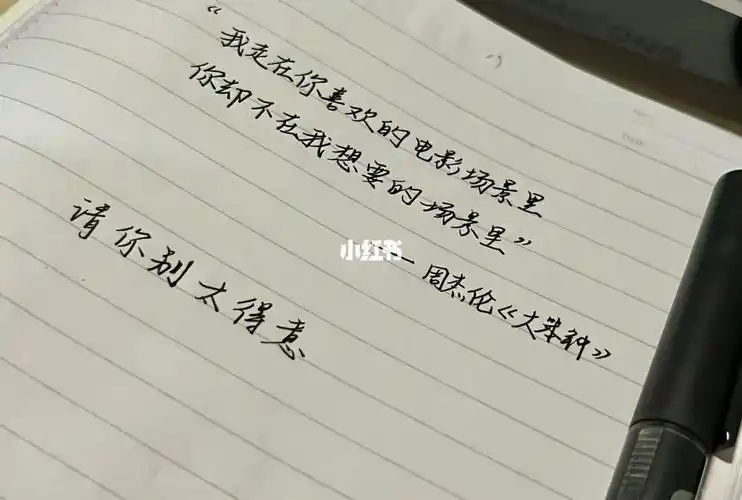 “我走在你喜欢的电影场景里
你却不在我想要的场景里”
——周杰伦《大笨钟》
请你别太得意
小红书